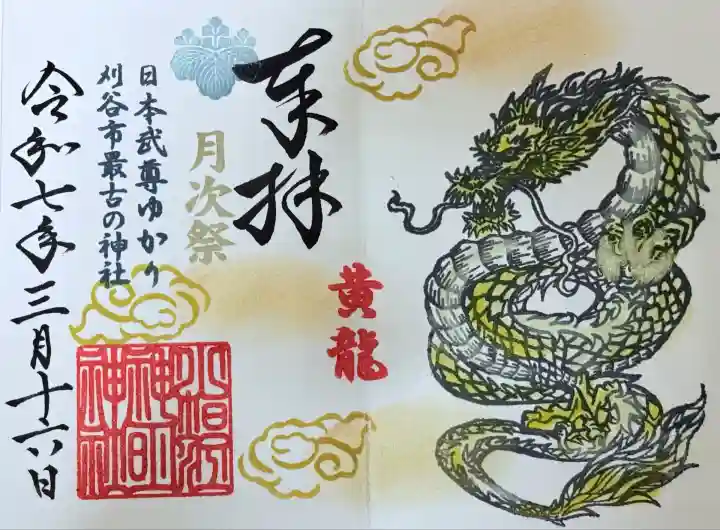 奉拝
黄龍
月次祭
日本武尊ゆかり
刈谷市最古の神社
小垣江
神明
神社
令和七年三月十六日